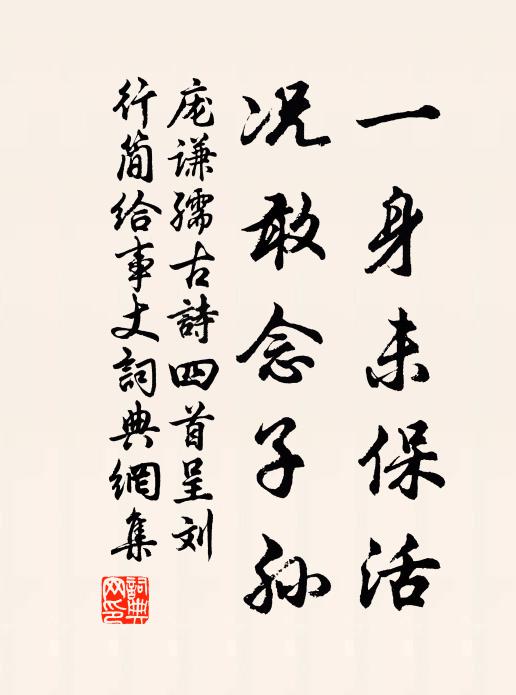 一身未保活
况敢念子孙
庞谦孺古詩四首呈刘
行簡给事丈詞典網集
詞典網印